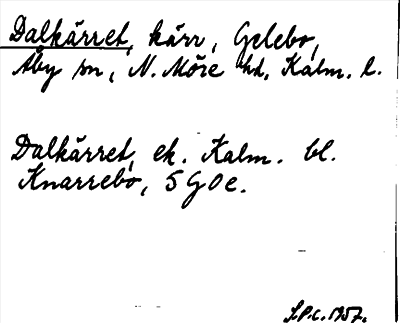 Dalkärret, kärr, Gelebo,
Åby sn, N. Möre hd, Kalm. l.
Dalkärret, ek. Kalm. bl.
Knarrebo, 5 G 0 e.
S.P.C. 1957.